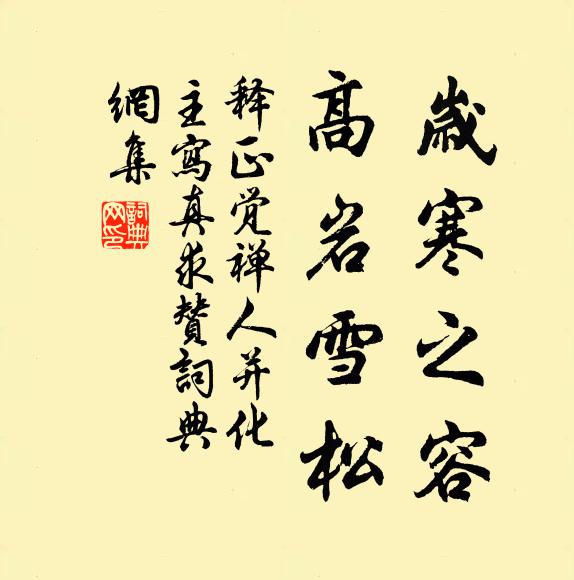 歲寒之容
高岩雪松
释正觉禅人并化
主寫真求賛詞典
網集
詞典
网印